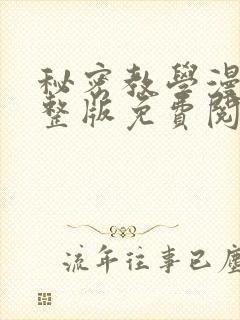 秘密教學漫
整版免費閱
流年往事已塵